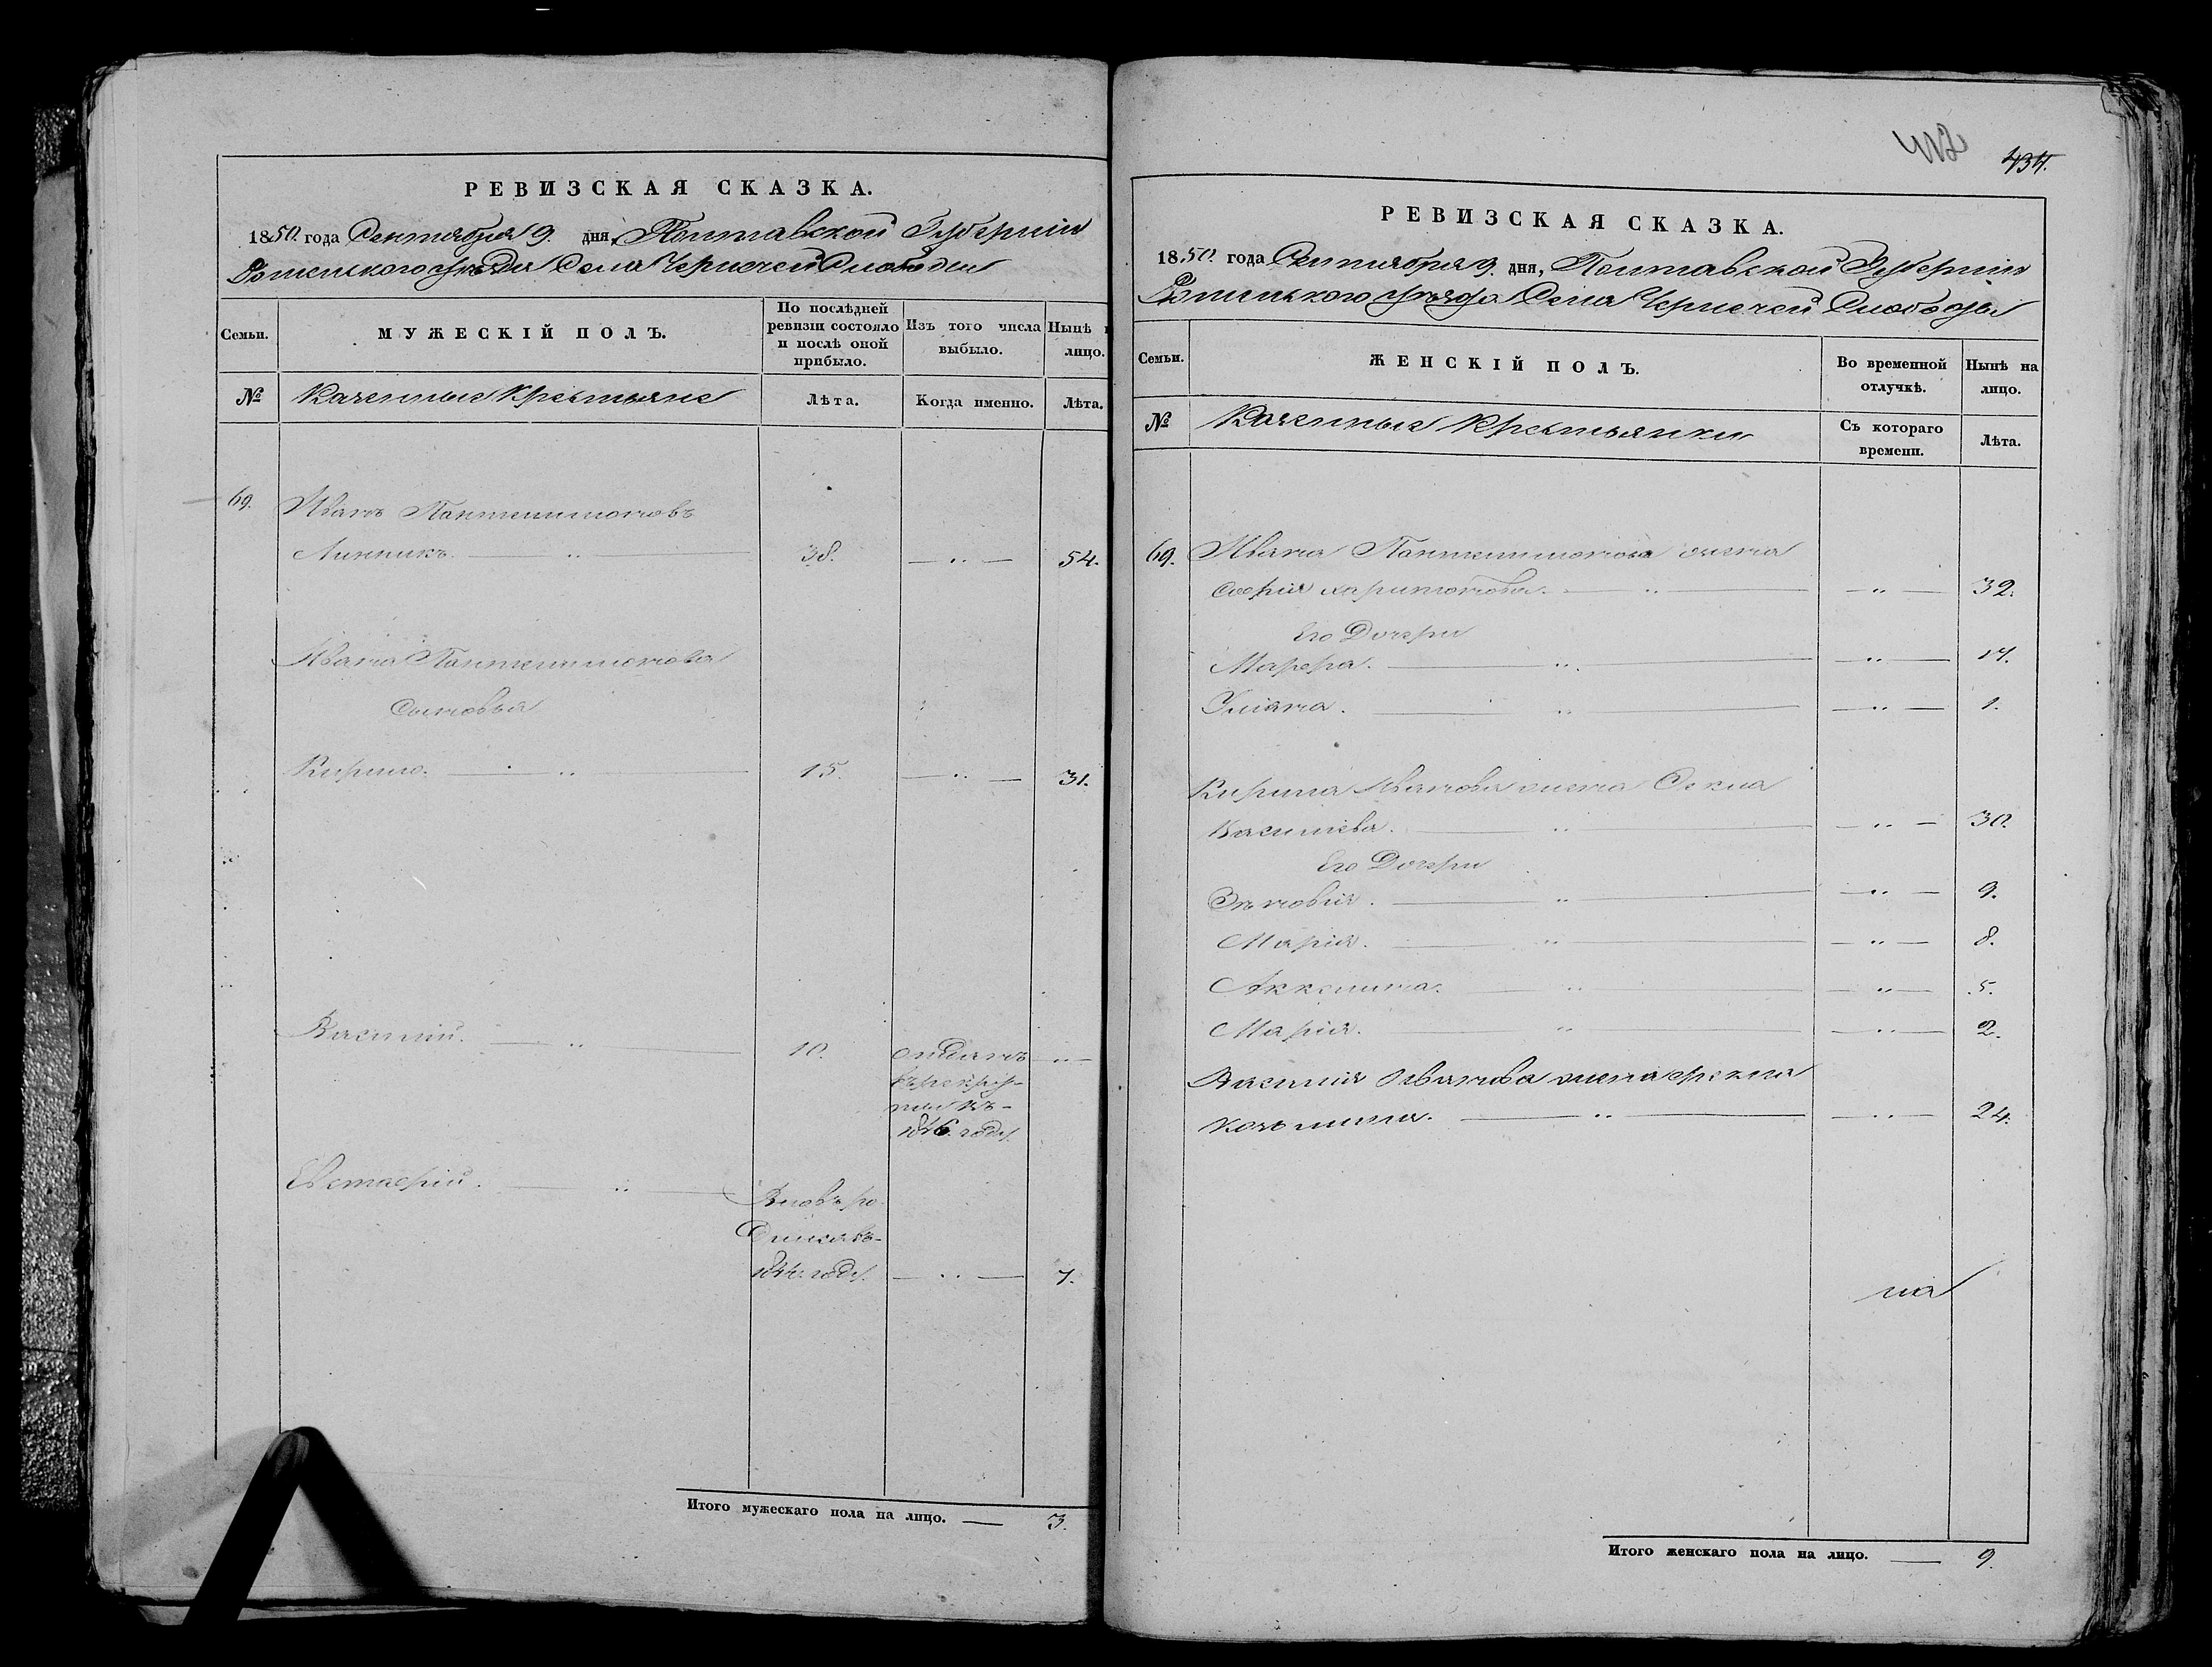 РЕВИЗСКАЯ СКАЗКА.
1850. года Сентября 9. дня, Полтавской Губерніи
Роменского уѣзда Села Чернечей Слободы
Семьи.
МУЖЕСКІЙ ПОЛЪ.
По послѣдней ревизіи состояло и послѣ оной прибыло.
Изъ того числа выбыло.
Нынѣ
лицо.
№
Казенные Крестьяне
Лѣта.
Когда именно.
Лѣта.
69. Иванъ Пантелимоновъ
Линникъ. — „ — 38. — „ — 54.
Ивана Пантелимонова
Сыновья
Кирило. — „ — 15. — „ — 31.
Василий. — „ — 10. отданъ — „ —
въ рекру-
ты въ-
1846. году.
Евстафій. — „ — Вновь ро
дился въ-
году. — „ — 7.
Итого мужескаго пола на лицо. — 3.
434.
РЕВИЗСКАЯ СКАЗКА.
1850. года Сентября 9. дня, Полтавской Губерніи
Роменьского уѣзда Села Чернечей Слободы
Семьи.
ЖЕНСКІЙ ПОЛЪ.
Во временной отлучкѣ.
Нынѣ на лицо.
№
Казенные Крестьянки
Съ котораго времени.
Лѣта.
69. Ивана Пантелимонова жена
Харитонова. — „ — — „ — 32.
Его Дочери
Марфа. — „ — — „ — 17.
Уліана. — „ — — „ — 1.
Кирила Иванова жена Фекла
Василіева. — „ — — „ — 30.
Его Дочери
Зѣновія. — „ — — „ — 9.
Марія. — „ — — „ — 8.
Акксинія. — „ — — „ — 5.
Марія. — „ — — „ — 2.
Василія Иванова жена Фекла
Козьмина. — „ — — „ — 24.
Итого женскаго пола на лицо. — 9.